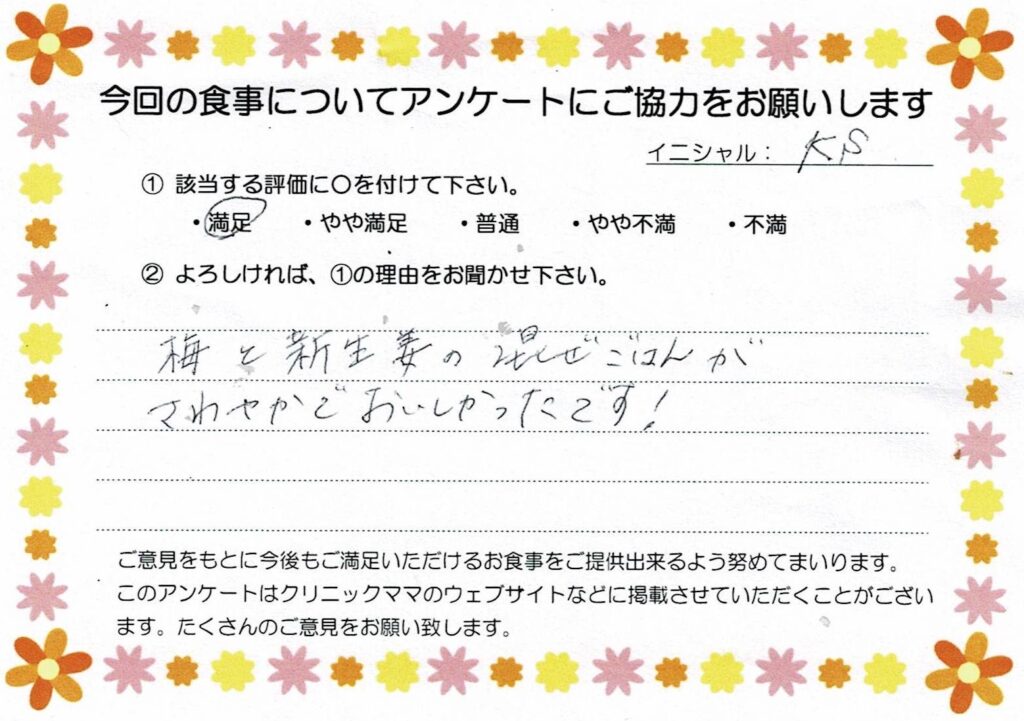 今回の食事についてアンケートにご協力をお願いします
イニシャル： KS
① 該当する評価に〇を付けて下さい。
・満足 ・やや満足 ・普通 ・やや不満 ・不満
② よろしければ、①の理由をお聞かせ下さい。
梅と新生姜の混ぜごはんが
さわやかでおいしかったです！
ご意見をもとに今後もご満足いただけるお食事をご提供出来るよう努めてまいります。
このアンケートはクリニックママのウェブサイトなどに掲載させていただくことがござい
ます。たくさんのご意見をお願い致します。